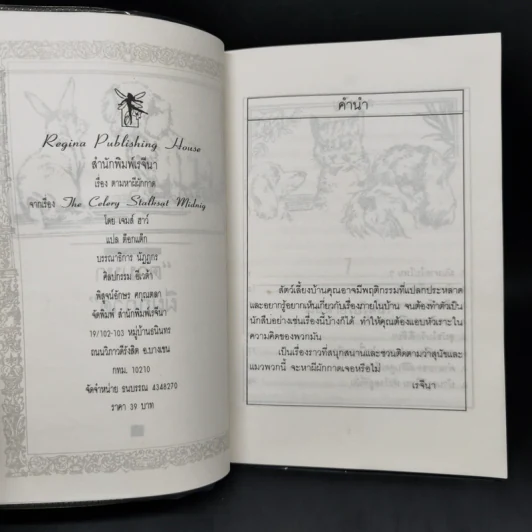 Regina Publishing House
สำนักพิมพ์เรจีนา
เรื่อง ตามหาผีผักกาด
จากเรื่อง The Celery Stalksat Midnig
โดย เจมส์ ฮาว์
แปล ด็อกแด็ก
บรรณาธิการ นัฏฏกร
ศิลปกรรม อีเวต้า
พิสูจน์อักษร ศกุณตลา
จัดพิมพ์ สำนักพิมพ์เรจีนา
19/102-103 หมู่บ้านอนินทร
ถนนวิภาวดีรังสิต อ.บางเขน
กทม. 10210
จัดจำหน่าย ธนบรรณ 4348270
ราคา 39 บาท
คำนำ
สัตว์เลี้ยงบ้านคุณอาจมีพฤติกรรมที่แปลกประหลาด
และอยากรู้อยากเห็นเกี่ยวกับเรื่องภายในบ้าน จนต้องทำตัวเป็น
นักสืบอย่างเช่นเรื่องนี้บ้างก็ได้ ทำให้คุณต้องแอบหัวเราะใน
ความคิดของพวกมัน
เป็นเรื่องราวที่สนุกสนานและชวนติดตามว่าสุนัขและ
แมวพวกนี้ จะหาผีผักกาดเจอหรือไม่
เรจีนา